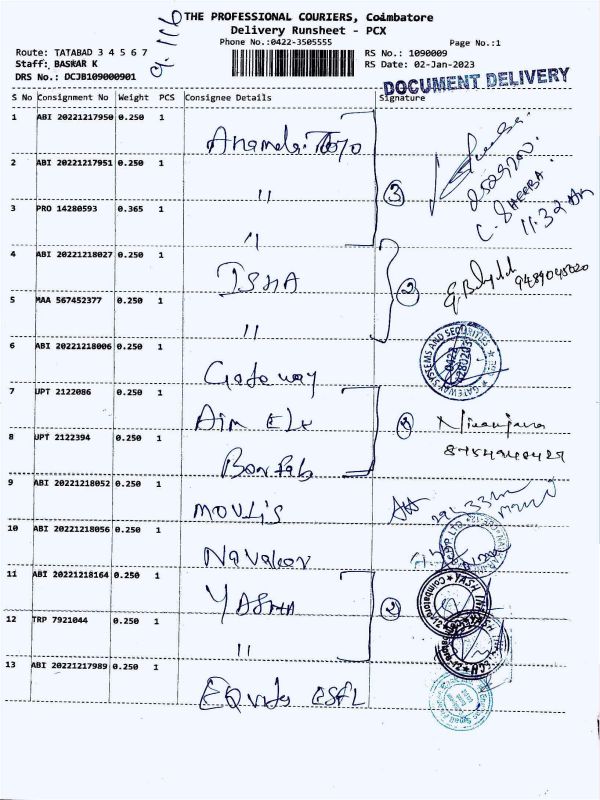 THE PROFESSIONAL COURIERS, Coimbatore
Delivery Runsheet - PCX
Phone No.:0422-3505555
Page No.:1
Route: TATABAD 3 4 5 6 7
Staff: BASKAR K
DRS No.: DCJB109000901
RS No.: 1090009
RS Date: 02-Jan-2023
DOCUMENT DELIVERY
S No Consignment No Weight PCS Consignee Details Signature
1 ABI 20221217950 0.250 1
2 ABI 20221217951 0.250 1 "
3 PRO 14280593 0.365 1 "
3
C. SHEEBA.
11:32 Am
4 ABI 20221218027 0.250 1 ISHA
5 MAA 567452377 0.250 1 "
2
6 ABI 20221218006 0.250 1 Gateway
GATEWAY SYSTEMS AND SECURITIES
7 UPT 2122086 0.250 1 Aim
8 UPT 2122394 0.250 1 Bonfab
Niranjana
9 ABI 20221218052 0.250 1 MOULIS
10 ABI 20221218056 0.250 1
11 ABI 20221218164 0.250 1 YASHA
12 TRP 7921044 0.250 1 "
2
13 ABI 20221217989 0.250 1 EQuitas ESFL